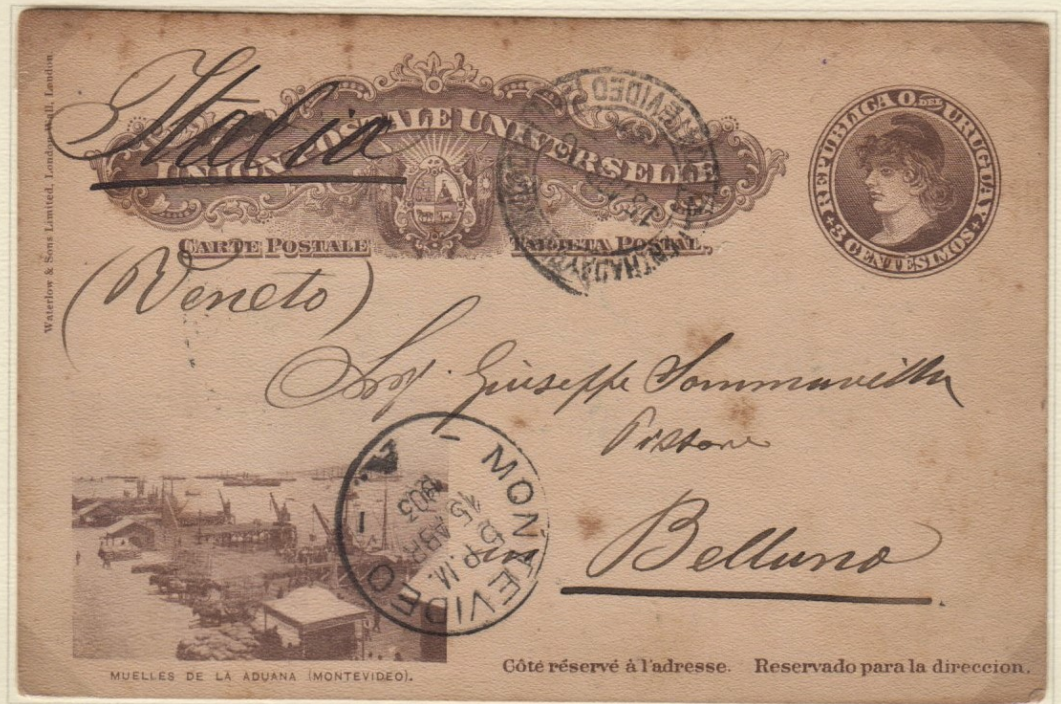 Waterlow & Sons Limited, London Wall, London
Italia
UNION POSTALE UNIVERSELLE
CARTE POSTALE TARJETA POSTAL.
REPUBLICA O. DEL URUGUAY
3 CENTÉSIMOS
MONTEVIDEO
(Veneto)
Sig. Giuseppe Sommavilla
Pittore
in Belluno
MONTEVIDEO
15 ABR
P.M.
903
MUELLES DE LA ADUANA (MONTEVIDEO).
Côté réservé à l'adresse. Reservado para la direccion.